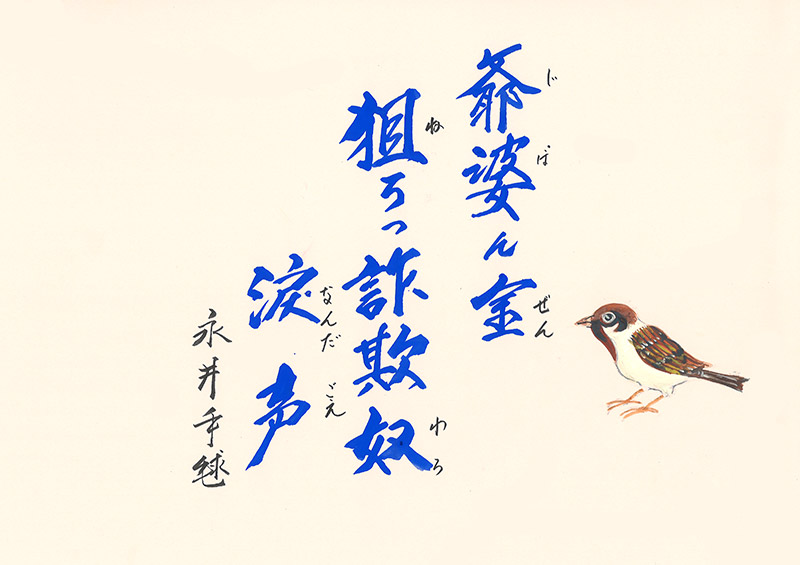 爺婆ん金
じ ぼ ぜん
狙ろっ詐欺奴
ね わろ
涙声
なんだ ごえ
永井手毬